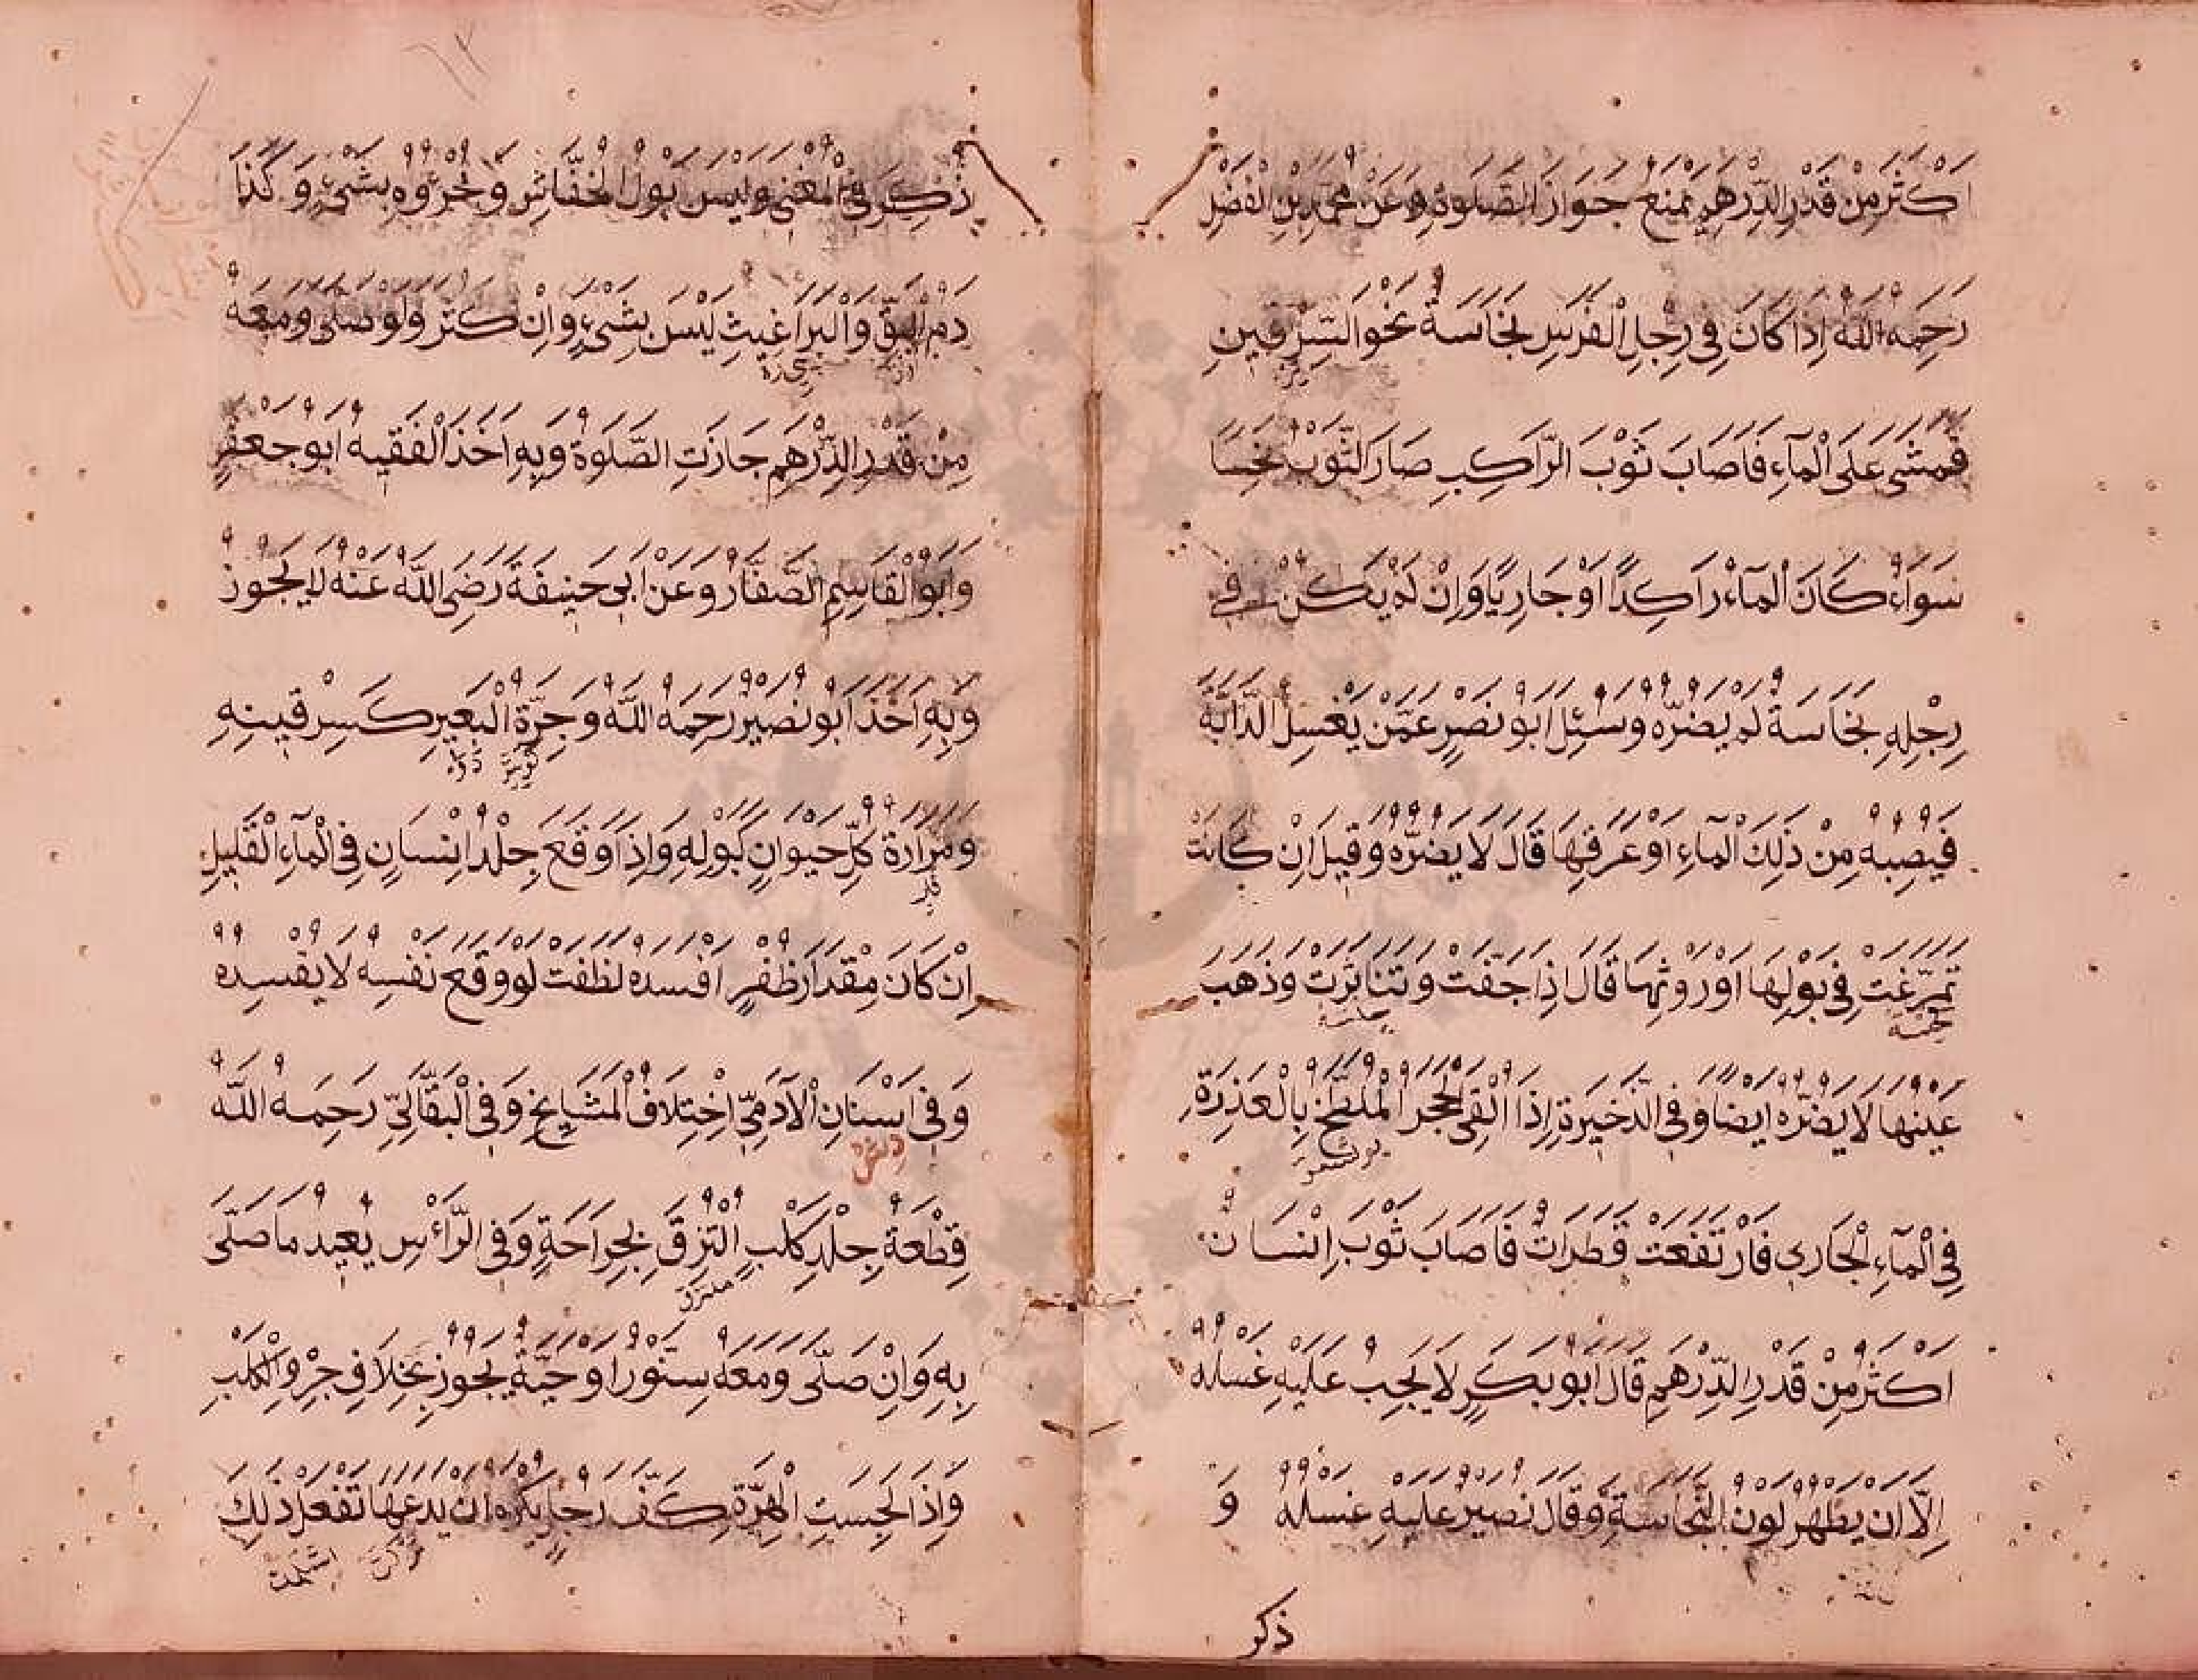 اَكْثَرَ مِنْ قَدْرِ الدِّرْهَمِ يَمْنَعُ جَوَازَ الصَّلٰوةِ وَعَنْ مُحَمَّدِ بْنِ الْفَضْلِ
رَحِمَهُ اللّٰهُ اِذَا كَانَ فِى رِجْلِ الْفَرَسِ نَجَاسَةٌ نَحْوُ السِّرْقِينِ
فَمَشٰى عَلَى الْمَآءِ فَاَصَابَ ثَوْبَ الرَّاكِبِ صَارَ الثَّوْبُ نَجِسًا
سَوَاءٌ كَانَ الْمَآءُ رَاكِدًا اَوْ جَارِيًا وَاِنْ لَمْ يَكُنْ فِى
رِجْلِهِ نَجَاسَةٌ لَمْ يَضُرَّهُ وَسُئِلَ اَبُو نَصْرٍ عَمَّنْ يَغْسِلُ الدَّابَّةَ
فَيُصِيبُهُ مِنْ ذٰلِكَ الْمَآءِ اَوْ عَرَقِهَا قَالَ لَا يَضُرُّهُ وَقِيلَ اِنْ كَانَتْ
تَمَرَّغَتْ فِى بَوْلِهَا اَوْ رَوْثِهَا قَالَ اِذَا جَفَّتْ وَتَنَاثَرَتْ وَذَهَبَ
عَيْنُهَا لَا يَضُرُّهُ اَيْضًا وَفِى الذَّخِيرَةِ اِذَا اُلْقِىَ الْحَجَرُ الْمُلَطَّخُ بِالْعَذِرَةِ
فِى الْمَآءِ الْجَارِى فَارْتَفَعَتْ قَطَرَاتٌ فَاَصَابَ ثَوْبَ اِنْسَانٍ
اَكْثَرُ مِنْ قَدْرِ الدِّرْهَمِ قَالَ اَبُو بَكْرٍ لَا يَجِبُ عَلَيْهِ غَسْلُهُ
اِلَّا اَنْ يَظْهَرَ لَوْنُ النَّجَاسَةِ وَقَالَ نُصَيْرٌ عَلَيْهِ غَسْلُهُ وَ
ذكر
ذُكِرَ فِى الْمُغْنِى وَلَيْسَ بَوْلُ الْخُفَّاشِ وَخُرْؤُهُ بِشَىْءٍ وَكَذَا
دَمُ الْبَقِّ وَالْبَرَاغِيثِ لَيْسَ بِشَىْءٍ وَاِنْ كَثُرَ وَلَوْ صَلَّى وَمَعَهُ
مِنْ قَدْرِ الدِّرْهَمِ جَازَتِ الصَّلٰوةُ وَبِهِ اَخَذَ الْفَقِيهُ اَبُو جَعْفَرٍ
وَاَبُو الْقَاسِمِ الصَّفَّارُ وَعَنْ اَبِى حَنِيفَةَ رَضِىَ اللّٰهُ عَنْهُ لَا يَجُوزُ
وَبِهِ اَخَذَ اَبُو نُصَيْرٍ رَحِمَهُ اللّٰهُ وَجِرَّةُ الْبَعِيرِ كَسِرْقِينِهِ
وَمَرَارَةُ كُلِّ حَيْوَانٍ كَبَوْلِهِ وَاِذَا وَقَعَ جِلْدُ اِنْسَانٍ فِى الْمَآءِ الْقَلِيلِ
اِنْ كَانَ مِقْدَارَ ظُفْرٍ اَفْسَدَهُ لَوْ وَقَعَ نَفْسُهُ لَا يُفْسِدُهُ
وَفِى اَسْنَانِ الْاٰدَمِىِّ اِخْتِلَافُ الْمَشَايِخِ وَفِى الْبَقَّالِىِّ رَحِمَهُ اللّٰهُ
قِطْعَةُ جِلْدِ كَلْبٍ الْتَزَقَ بِجِرَاحَةٍ وَفِى الرَّأْسِ يُعِيدُ مَا صَلَّى
بِهِ وَاِنْ صَلَّى وَمَعَهُ سِنَّوْرٌ اَوْ حَيَّةٌ يَجُوزُ بِخِلَافِ جِرْوِ الْكَلْبِ
وَاِذَا لَحِسَتِ الْهِرَّةُ كَفَّ رَجُلٍ يُكْرَهُ اَنْ يَدَعَهَا تَفْعَلُ ذٰلِكَ